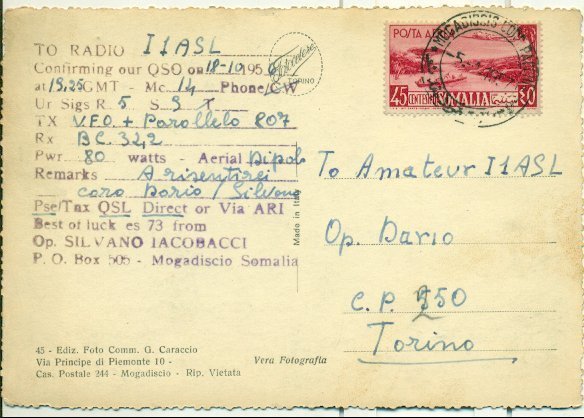 TO RADIO I1ASL
Confirming our QSO on 18-10 195
at 15,25 GMT - Mc. 14 Phone/CW
Ur Sigs R. 5 S 9 T
TX V.F.O. + Parallelo 807
Rx BC. 322
Pwr 80 watts - Aerial Dipolo
Remarks A risentirci
caro Dario / Silvano
Pse/Tnx QSL Direct or Via ARI
Best of luck es 73 from
Op. SILVANO IACOBACCI
P. O. Box 505 - Mogadiscio Somalia
45 - Ediz. Foto Comm. G. Caraccio
Via Principe di Piemonte 10 -
Cas. Postale 244 - Mogadiscio - Rip. Vietata
Vera Fotografia
Made in Italy
Fotocelere
TORINO
POSTA AE
45 CENTESIMI SOMALIA
MOGADISCIO
To Amateur I1ASL
Op. Dario
C.P. 250
Torino